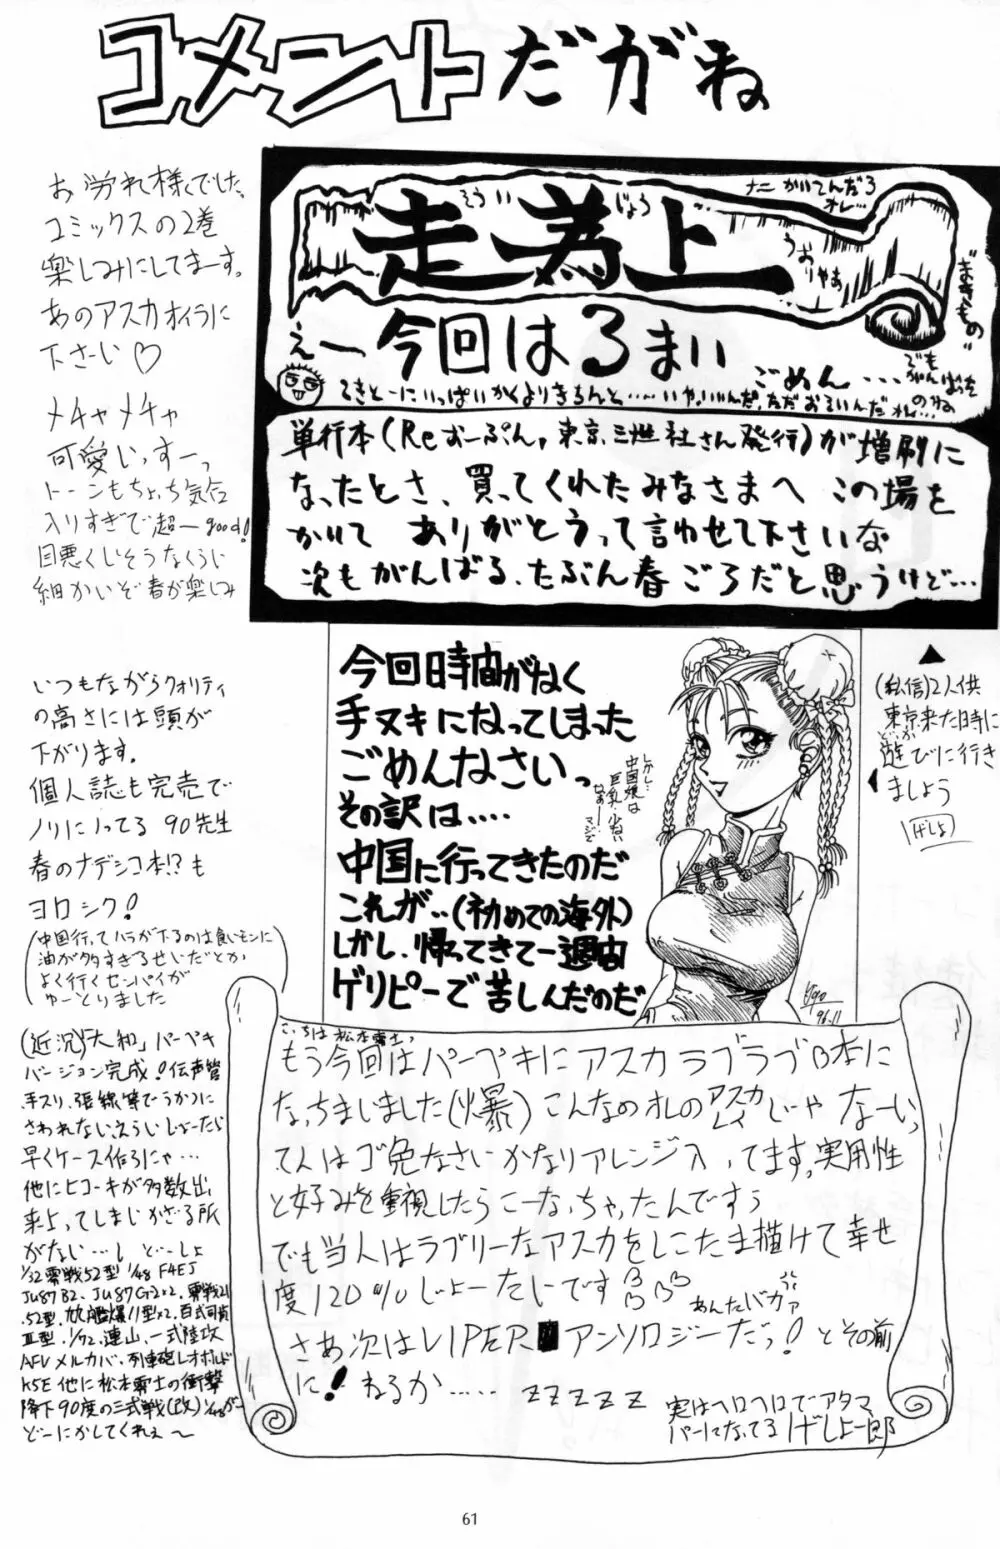 コメントだがね
走為上
そう い じょう
ナニ かいてんだろ
オレ…
うおりゃあ
"まきもの"
えー 今回はるまい
ごめん…
でも
がんばった
のね
単行本(Reずーぷん, 東京三世社さん発行)が増刷に
なったとさ、買ってくれたみなさまへ この場を
かりて ありがとうって言わせて下さいな
次もがんばる、たぶん春ごろだと思うけど…
お労れ様でした、
コミックスの2巻
楽しみにしてまーす。
あのアスカオイラに
下さーい♡
メチャメチャ
可愛いっすーっ
トーンもちょっち気合
入りすぎで超ーgood!
目悪くしそうなくらい
細かいぞ春が楽しみ
今回時間がなく
手ヌキになってしまった
ごめんなさいっ
その訳は‥‥
中国に行ってきたのだ
これが‥(初めての海外)
しかし、帰ってきて一週間
ゲリピーで苦しんだのだ
しかし…
中国娘は
巨乳少ない
なぁー…マジで
(私信)2人供
東京来た時に
どっか
遊びに行き
ましょう
げしょ
いつもながらクォリティ
の高さには頭が
下がります。
個人誌も完売で
ノリにノッてる 90先生
春のナデシコ本!?も
ヨロシク!
(中国行ってハラが下るのは食いモンに
油が多すぎるせいだとか
よく行くセンパイが
ゆーとりました)
(近況)「大和」パーペキ
バージョン完成!伝声管
手スリ、張線等でうかつに
さわれないえらいしょーたい
早くケース作ろにゃ…
他にヒコーキが多数出
来上ってしまいかざる所
がない…し どーしよ
1/32零戦52型 1/48 F4EJ
JU87B2、JU87G2×2、零戦21
52型、彗艦爆11型×2、百式司偵
Ⅲ型、1/72、連山、一式陸攻
AFVメルカバ、列車砲レオポルド
K5E他に松本零士の衝撃
降下90度の三式戦(改)1/48がー
どーにかしてくれぇ〜
こっちは松本零士っ
もう今回はパーペキにアスカラブラブB本に
なっちまいました(爆)こんなのオレのアスカ
じゃなーいっ
て人はゴ免なさいかなりアレンジ入ってます。実用性
と好みを重視したらこーなっちゃったんですぅ
でも当人はラブリーなアスカをしこたま描けて幸せ
度120%じょーたいです
あんたバカァ
さあ次はVIPERアンソロジーだっ!とその前
に!ねるか…… zzzzz
実はヘロヘロでアタマ
パーになってるげしょ一郎
61